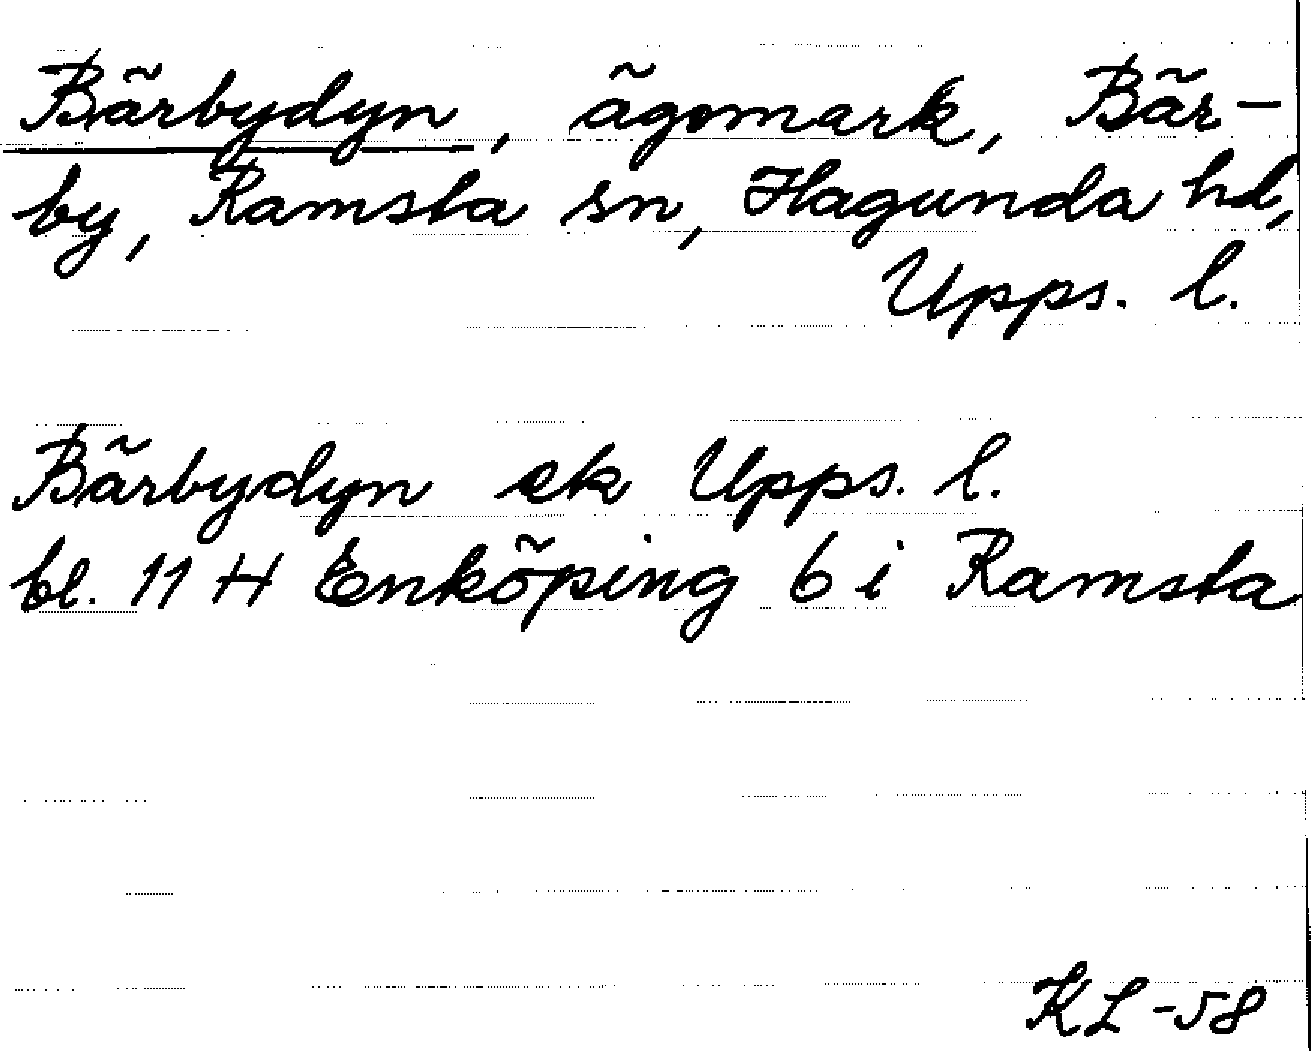 Bärbydyn, ägomark, Bär-
by, Ramsta sn, Hagunda hd,
Upps. l.
Bärbydyn ek Upps. l.
bl. 11 H Enköping 6 i Ramsta
KL -58